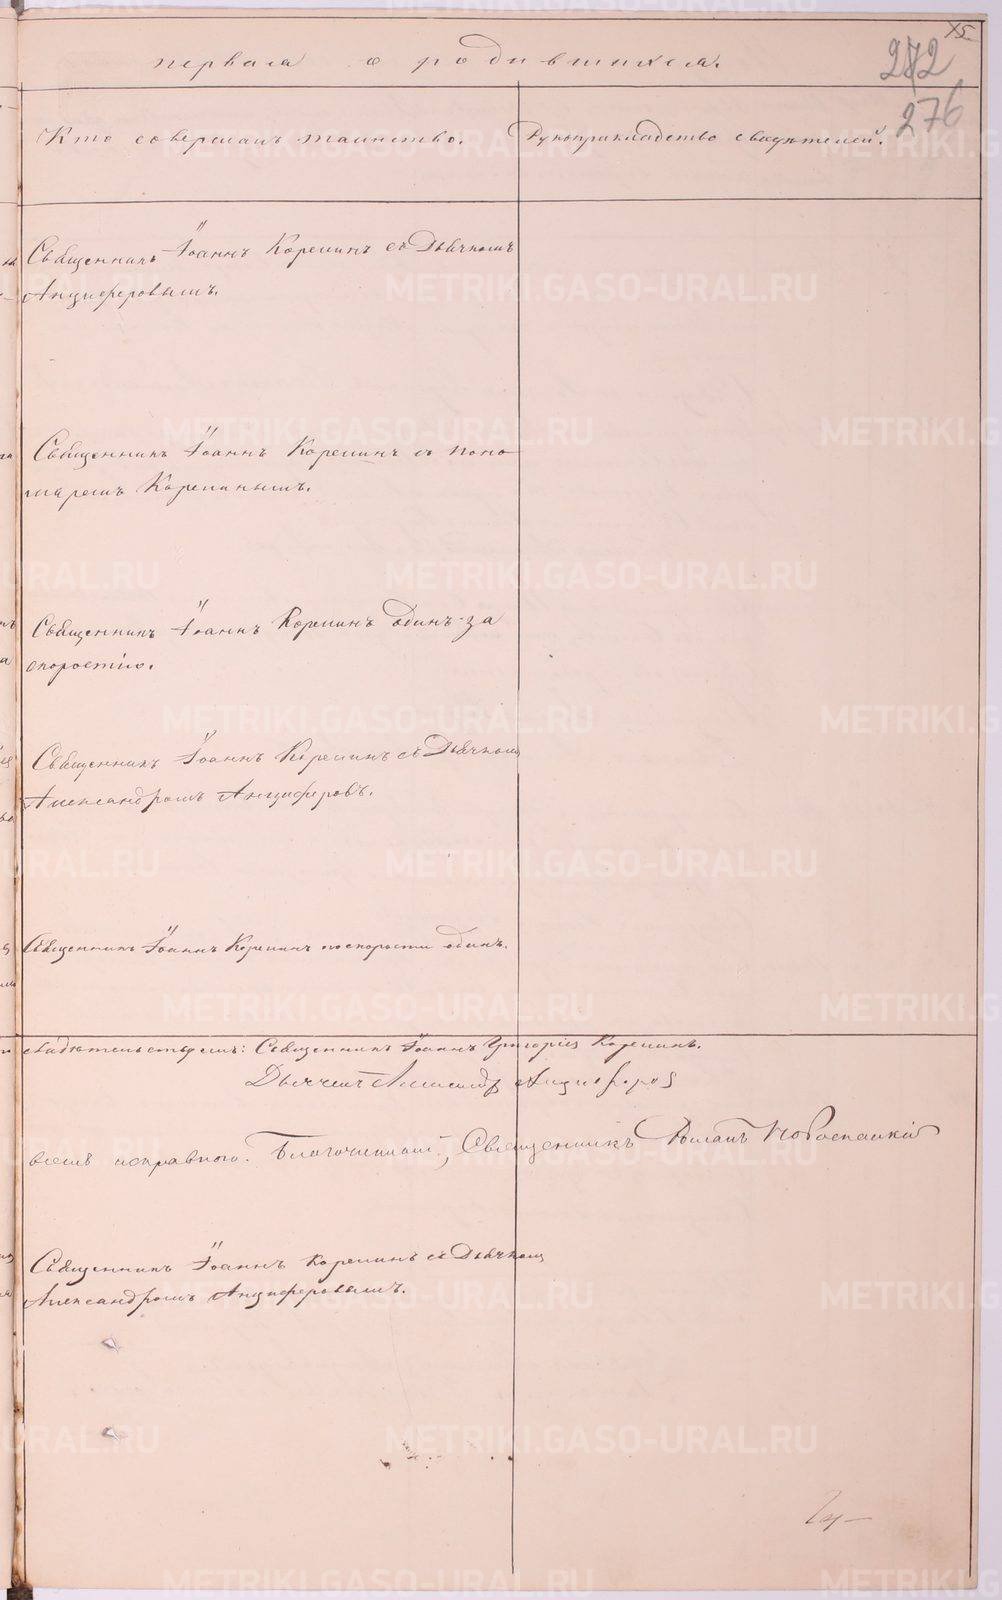 15.
первая о родившихся.
272
276
Кто совершалъ таинство.
Рукоприкладство свидѣтелей.
Священникъ Іоаннъ Корепинъ съ Дьячкомъ
Анциферовымъ.
Священникъ Іоаннъ Корепинъ съ поно
маремъ Корепинымъ.
Священникъ Іоаннъ Корепинъ одинъ за
скоростію.
Священникъ Іоаннъ Корепинъ съ Дьячкомъ
Александромъ Анциферовъ.
Священникъ Іоаннъ Корепинъ по скорости одинъ.
Священникъ Іоаннъ Григоріев Корепинъ.
Дьячекъ Александр Анциферов
всемъ исправного. Благочинный, Священникъ Романъ
Священникъ Іоаннъ Корепинъ съ Дьячкомъ
Александромъ Анциферовымъ.
METRIKI.GASO-URAL.RU